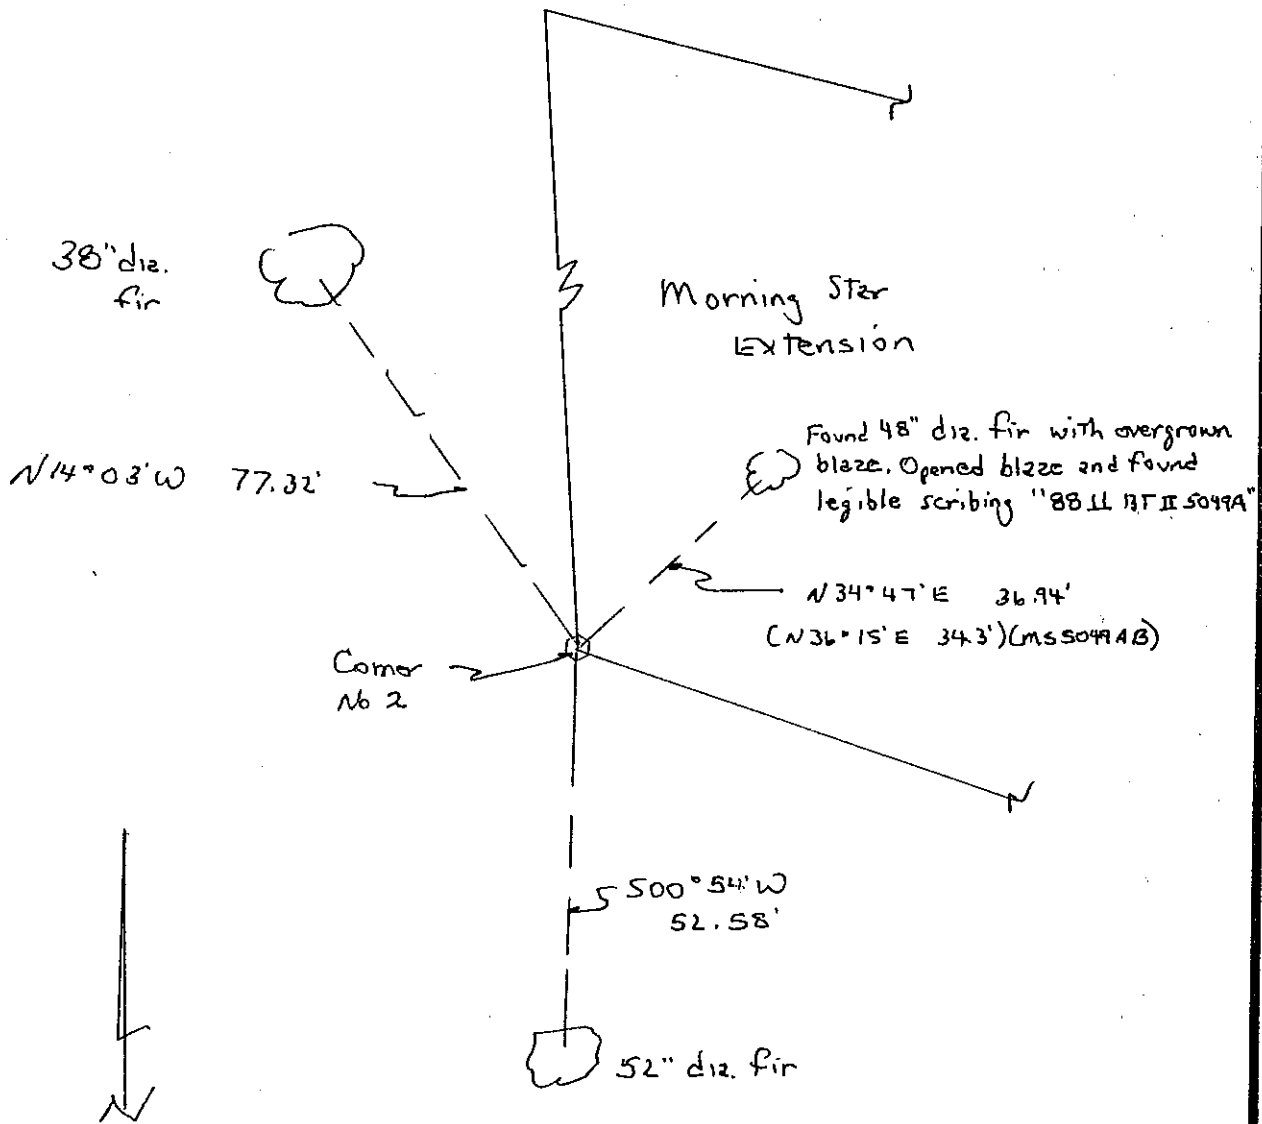 38" dia.
fir
Morning Star
Extension
Found 48" dia. fir with overgrown
blaze. Opened blaze and found
legible scribing "88 11 BT II 5049A"
N14°03'W 77.32'
N34°47'E 36.94'
(N36°15'E 34.3')(MS5049AB)
Corner
No 2
S00°54'W
52.58'
52" dia. fir
N